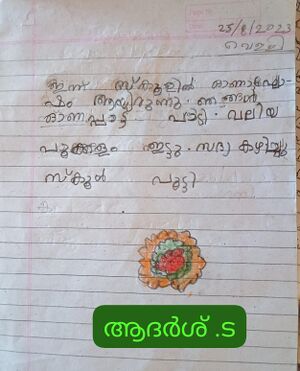 25/8/2023
വെള്ളി
ഇന്ന് സ്കൂളിൽ ഓണാഘോ-
ഷം ആയിരുന്നു. ഞങ്ങൾ
ഓണപ്പാട്ട് പാട്ടി. വലിയ
പൂക്കളം ഇട്ടു. സദ്യ കഴിച്ചു
സ്കൂൾ പൂട്ടി
ആദർശ് .S